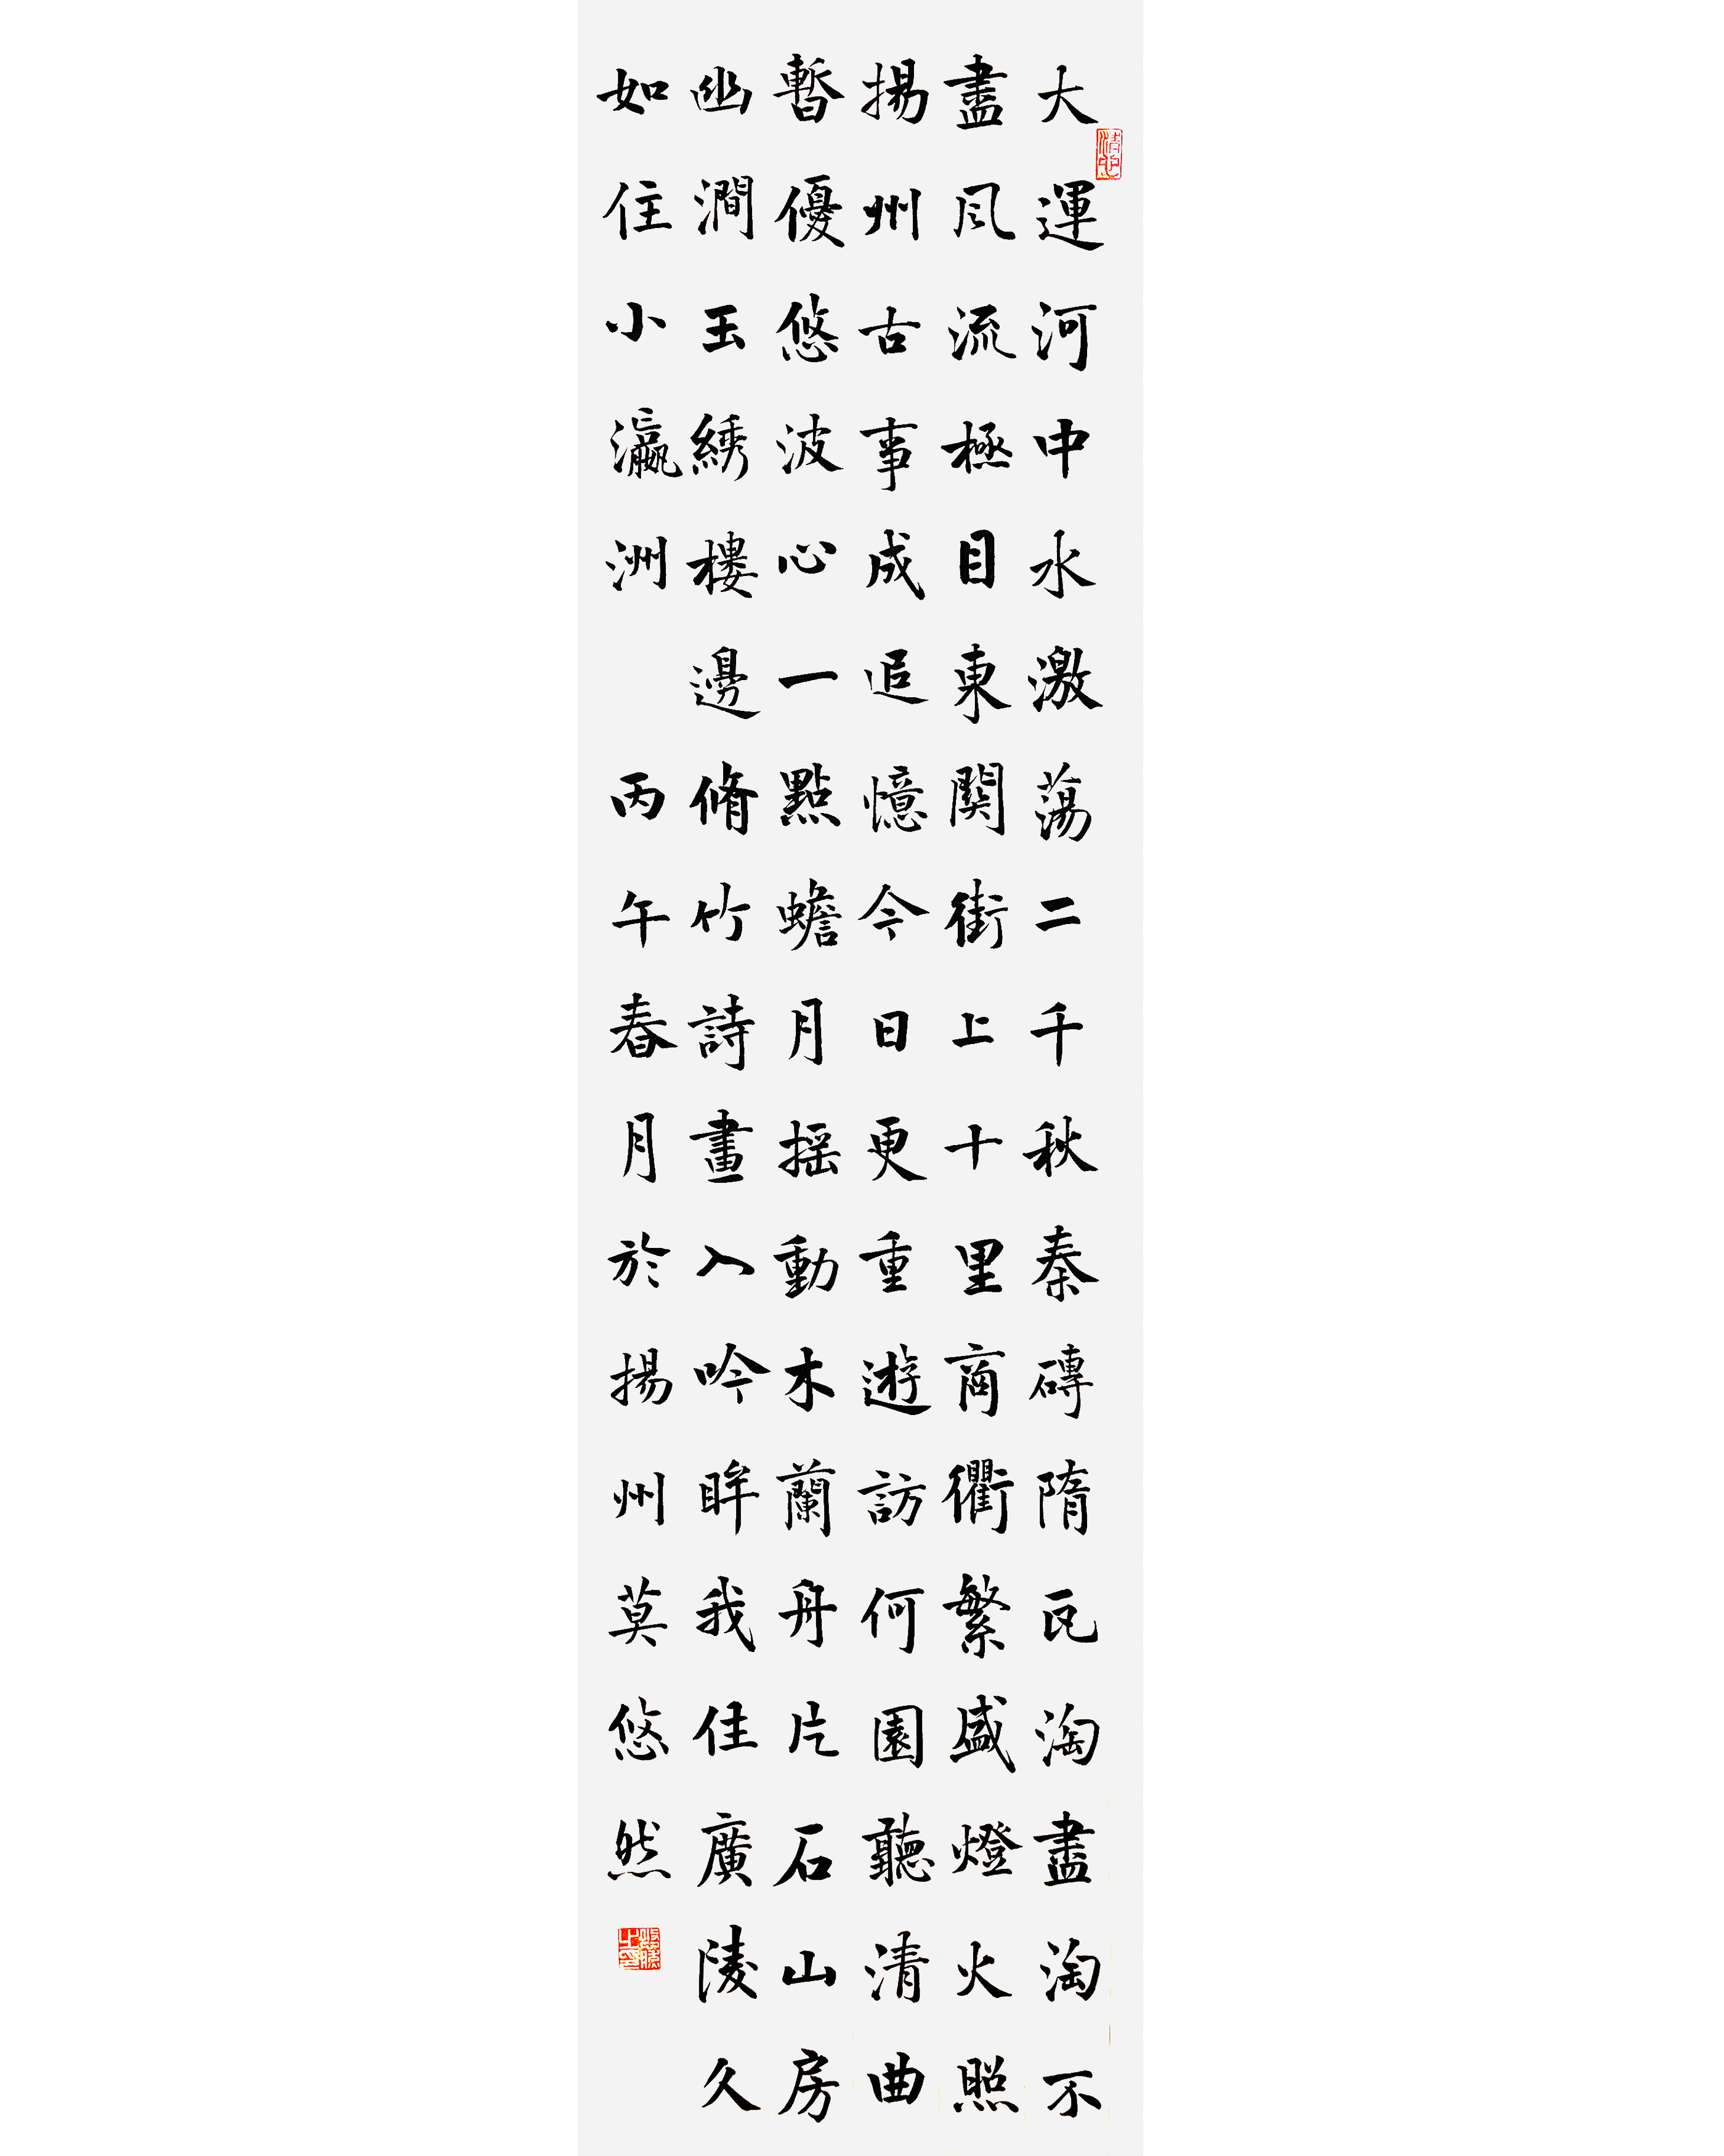 大運河中水激蕩二千秋秦磚隋瓦淘盡淘不
盡風流極目東関街上十里商衢繁盛燈火照
揚州古事成追憶今日更重遊訪何園聽清曲
暫優悠波心一點蟾月摇動木蘭舟片石山房
幽澗玉綉樓邊脩竹詩畫入吟眸我住廣陵久
如住小瀛洲 丙午春月於揚州莫悠然